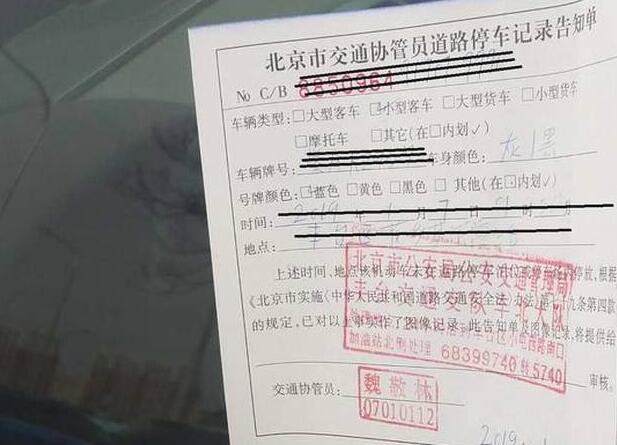 北京市交通协管员道路停车记录告知单
No C/B 8850964
车辆类型：□大型客车 □小型客车 □大型货车 □小型货车
□摩托车 □其它(在□内划√)
车辆牌号： 车身颜色：灰/黑
号牌颜色：□蓝色 □黄色 □黑色 □其他(在□内划√)
时间：2019年1月7日 时
地点：
上述时间、地点该机动车未在道路停车泊位或 停放，根据
《北京市实施〈中华人民共和国道路交通安全法〉办法》第 十九条第四款
的规定，已对以上事实作了图像记录。此告知单及图像记录，将提供给
审核。
北京市公安局公安交通管理局
丰台交通支队 大队
小屯西路南口
加油站北侧处理 68399740转5740
交通协管员：
魏敬林
07010112
2019